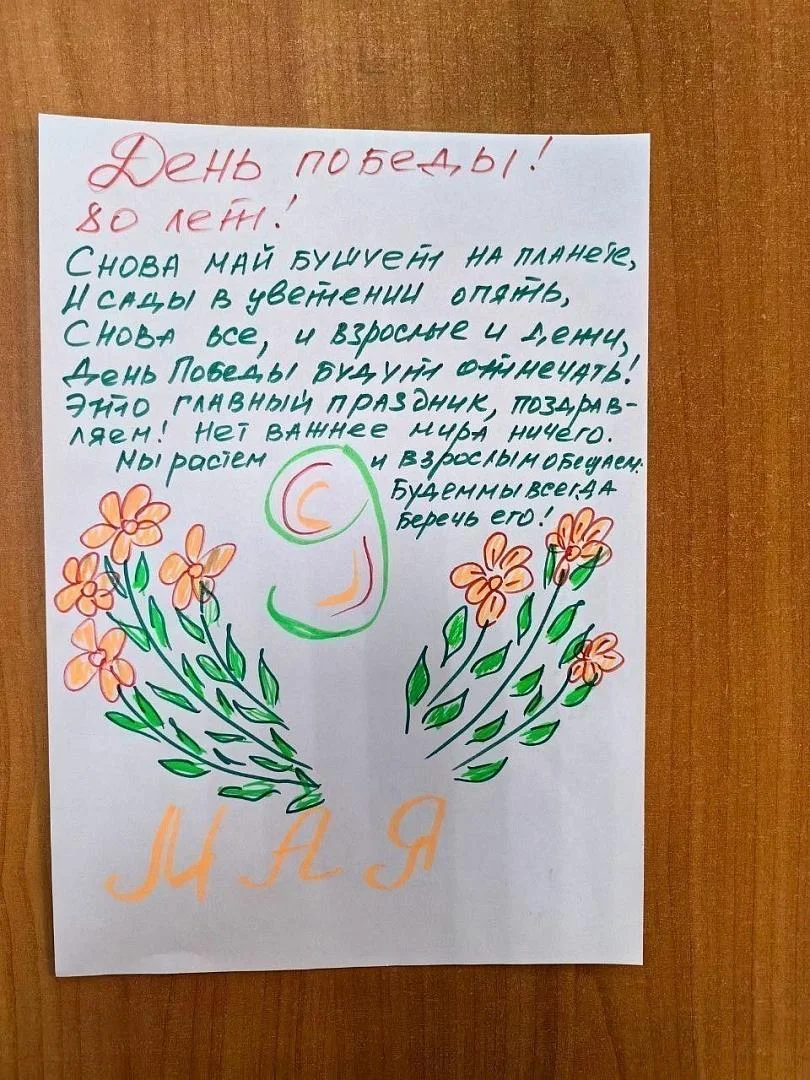 День победы!
80 лет!
Снова май бушует на планете,
И сады в цветении опять,
Снова все, и взрослые и дети,
День Победы будут отмечать!
Это главный праздник, поздрав-
ляем! Нет важнее мира ничего.
Мы растем и взрослым обещаем:
Будем мы всегда
беречь его!
9
МАЯ